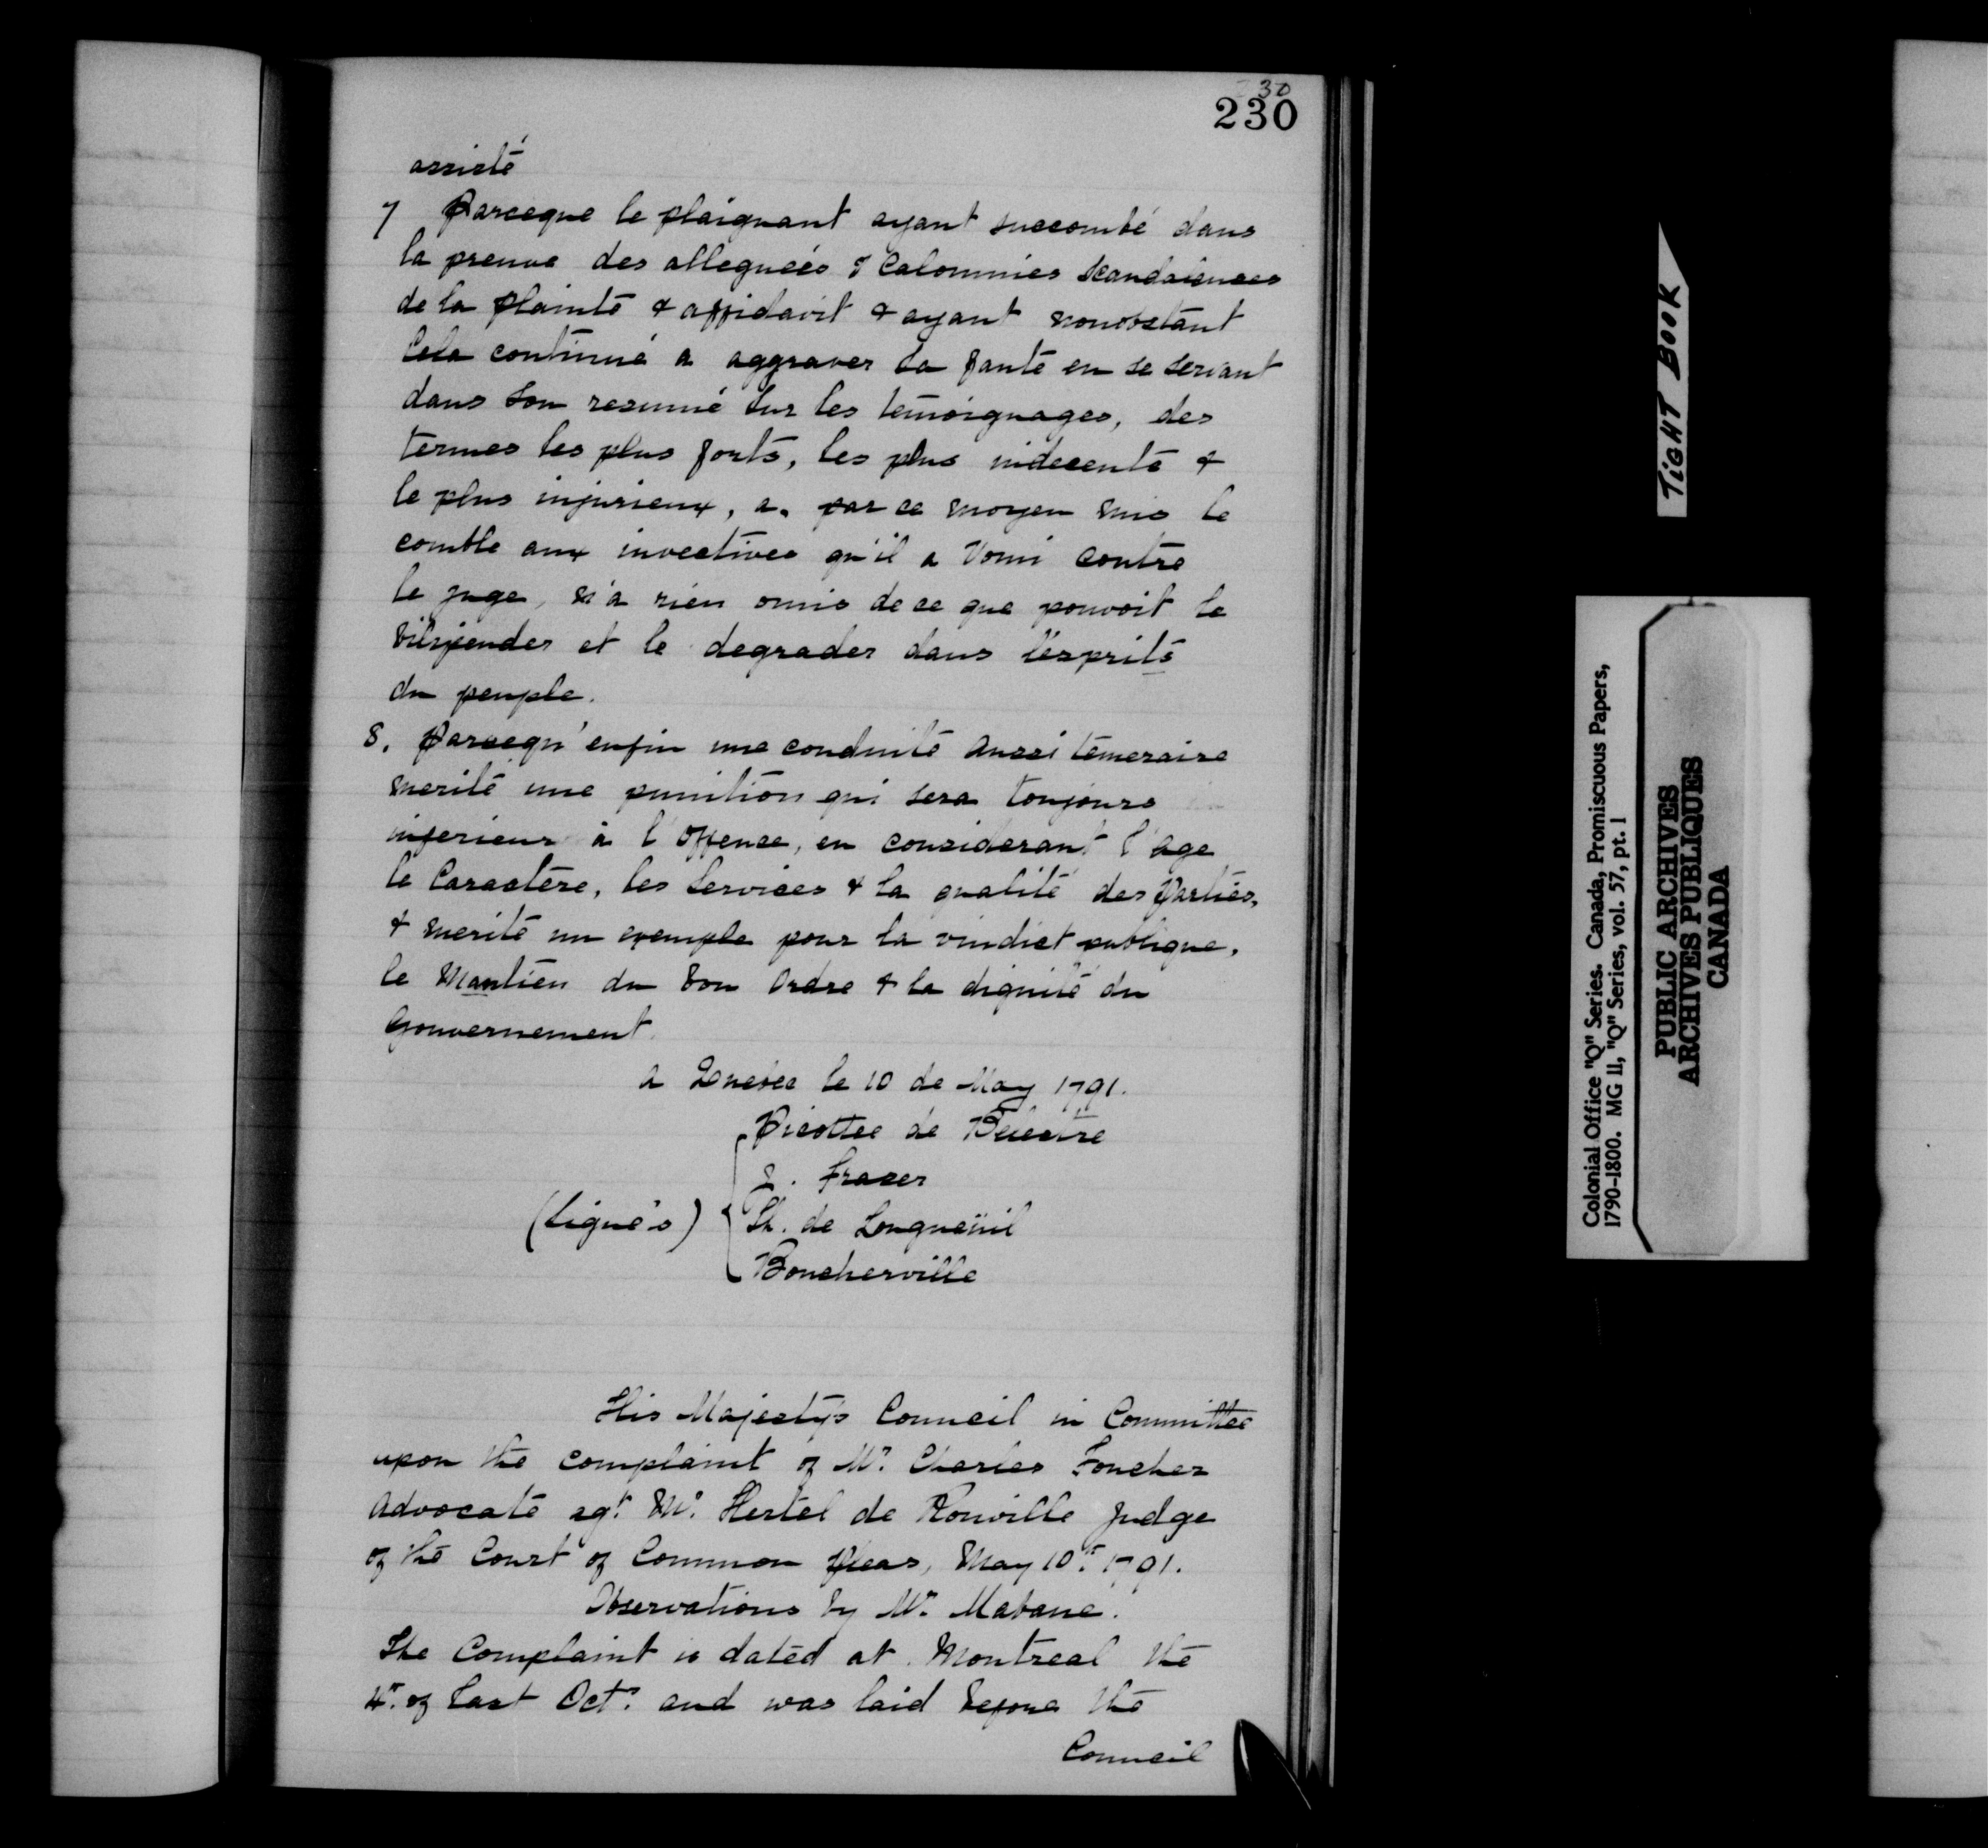 30
230
assisté
7 Parceque le plaignant ayant succombé dans
la preuve des alleguées & Calomnies Scandaleuses
de la plainte & affidavit & ayant nonobstant
Cela continué a aggraver sa faute en se servant
dans son resumé sur les temoignages, des
termes les plus forts, les plus indecents &
le plus injurieux, a, par ce moyen mis le
comble aux invectives qu'il a Vomi contre
le juge, n'a rien omis de ce que pouvoit le
vilipender et le degrader dans l'esprits
du peuple.
8. Parcequ'enfin une conduite aussi temeraire
merite une punition qui sera toujours
inferieur à l'Offence, en considerant l'age
le Caractère, les Services & la qualité des Parties,
& merite un exemple pour la vindict publique,
le Mantien du bon Ordre & la dignité du
Gouvernement.
A Quebec le 10 de May 1791.
Picottee de Belestre
J. Fraser
(signés) Ch. de Longueüil
Boucherville
His Majesty's Council in Committee
upon the complaint of Mr. Charles Foucher
Advocate agt. Mr. Hertel de Rouville Judge
of the Court of Common Pleas, May 10th. 1791.
Observations by Mr. Mabane.
The Complaint is dated at Montreal the
4th. of Last Octr. and was laid before the
Council
TIGHT BOOK
Colonial Office "Q" Series. Canada, Promiscuous Papers,
1790-1800. MG 11, "Q" Series, vol. 57, pt. 1
PUBLIC ARCHIVES
ARCHIVES PUBLIQUES
CANADA